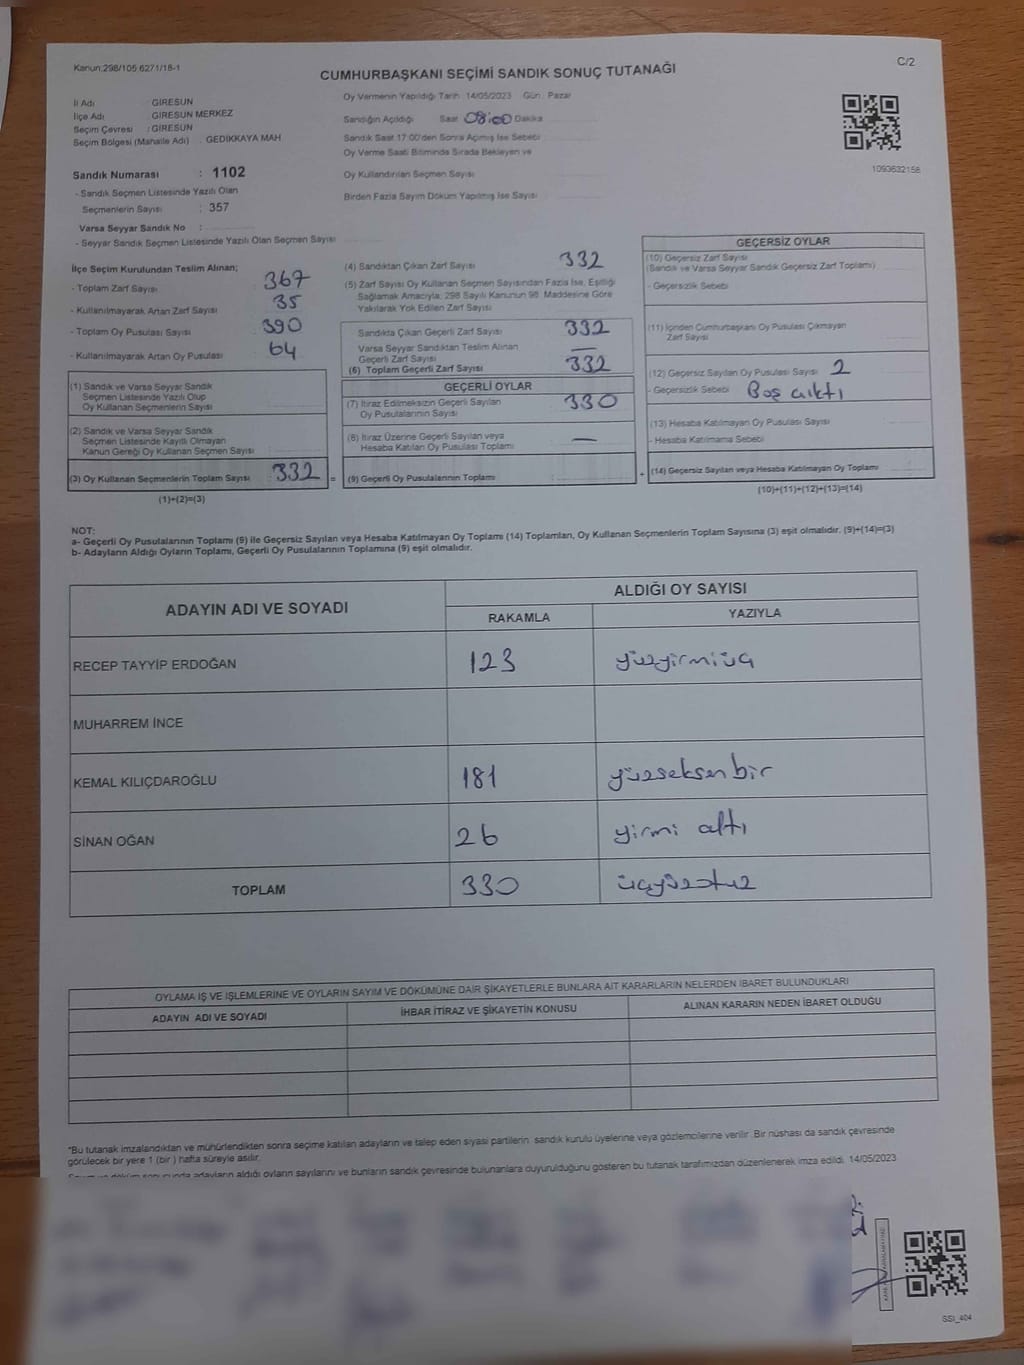 Kanun:298/105 6271/18-1
C/2
CUMHURBAŞKANI SEÇİMİ SANDIK SONUÇ TUTANAĞI
İl Adı : GİRESUN
İlçe Adı : GİRESUN MERKEZ
Seçim Çevresi : GİRESUN
Seçim Bölgesi (Mahalle Adı) : GEDİKKAYA MAH
Sandık Numarası : 1102
- Sandık Seçmen Listesinde Yazılı Olan
Seçmenlerin Sayısı : 357
Varsa Seyyar Sandık No :
- Seyyar Sandık Seçmen Listesinde Yazılı Olan Seçmen Sayısı
Oy Vermenin Yapıldığı Tarih : 14/05/2023 Gün : Pazar
Sandığın Açıldığı Saat 08:00 Dakika
Sandık Saat 17:00'den Sonra Açılmış İse Sebebi
Oy Verme Saati Bitiminde Sırada Bekleyen ve
Oy Kullandırılan Seçmen Sayısı
Birden Fazla Sayım Döküm Yapılmış İse Sayısı
1093632158
İlçe Seçim Kurulundan Teslim Alınan;
- Toplam Zarf Sayısı : 367
- Kullanılmayarak Artan Zarf Sayısı : 35
- Toplam Oy Pusulası Sayısı : 390
- Kullanılmayarak Artan Oy Pusulası : 64
(1) Sandık ve Varsa Seyyar Sandık
Seçmen Listesinde Yazılı Olup
Oy Kullanan Seçmenlerin Sayısı
(2) Sandık ve Varsa Seyyar Sandık
Seçmen Listesinde Kayıtlı Olmayan
Kanun Gereği Oy Kullanan Seçmen Sayısı
(3) Oy Kullanan Seçmenlerin Toplam Sayısı : 332
(1)+(2)=(3)
(4) Sandıktan Çıkan Zarf Sayısı 332
(5) Zarf Sayısı Oy Kullanan Seçmen Sayısından Fazla İse, Eşitliği
Sağlamak Amacıyla; 298 Sayılı Kanunun 98. Maddesine Göre
Yakılarak Yok Edilen Zarf Sayısı
Sandıkta Çıkan Geçerli Zarf Sayısı 332
Varsa Seyyar Sandıktan Teslim Alınan
Geçerli Zarf Sayısı —
(6) Toplam Geçerli Zarf Sayısı 332
GEÇERLİ OYLAR
(7) İtiraz Edilmeksizin Geçerli Sayılan 330
Oy Pusulalarının Sayısı
(8) İtiraz Üzerine Geçerli Sayılan veya
Hesaba Katılan Oy Pusulası Toplamı —
= (9) Geçerli Oy Pusulalarının Toplamı
GEÇERSİZ OYLAR
(10) Geçersiz Zarf Sayısı
(Sandık ve Varsa Seyyar Sandık Geçersiz Zarf Toplamı)
- Geçersizlik Sebebi
(11) İçinden Cumhurbaşkanı Oy Pusulası Çıkmayan
Zarf Sayısı
(12) Geçersiz Sayılan Oy Pusulası Sayısı 2
- Geçersizlik Sebebi Boş çıktı
(13) Hesaba Katılmayan Oy Pusulası Sayısı
- Hesaba Katılmama Sebebi
+ (14) Geçersiz Sayılan veya Hesaba Katılmayan Oy Toplamı
(10)+(11)+(12)+(13)=(14)
NOT:
a- Geçerli Oy Pusulalarının Toplamı (9) ile Geçersiz Sayılan veya Hesaba Katılmayan Oy Toplamı (14) Toplamları, Oy Kullanan Seçmenlerin Toplam Sayısına (3) eşit olmalıdır. (9)+(14)=(3)
b- Adayların Aldığı Oyların Toplamı, Geçerli Oy Pusulalarının Toplamına (9) eşit olmalıdır.
ADAYIN ADI VE SOYADI ALDIĞI OY SAYISI
RAKAMLA YAZIYLA
RECEP TAYYİP ERDOĞAN 123 yüzyirmiüç
MUHARREM İNCE
KEMAL KILIÇDAROĞLU 181 yüzseksenbir
SİNAN OĞAN 26 yirmi altı
TOPLAM 330 üçyüzotuz
OYLAMA İŞ VE İŞLEMLERİNE VE OYLARIN SAYIM VE DÖKÜMÜNE DAİR ŞİKAYETLERLE BUNLARA AİT KARARLARIN NELERDEN İBARET BULUNDUKLARI
ADAYIN ADI VE SOYADI İHBAR İTİRAZ VE ŞİKAYETİN KONUSU ALINAN KARARIN NEDEN İBARET OLDUĞU
*Bu tutanak imzalandıktan ve mühürlendikten sonra seçime katılan adayların ve talep eden siyasi partilerin sandık kurulu üyelerine veya gözlemcilerine verilir. Bir nüshası da sandık çevresinde
görülecek bir yere 1 (bir) hafta süreyle asılır.
sonucunda adayların aldığı oyların sayılarını ve bunların sandık çevresinde bulunanlara duyurulduğunu gösteren bu tutanak tarafımızdan düzenlenerek imza edildi. 14/05/2023
SSI_404